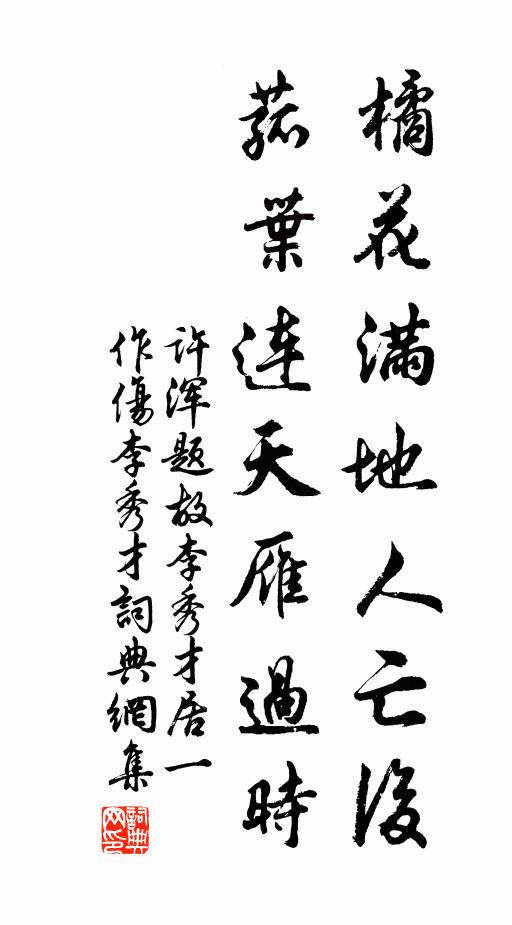 橘花滿地人亡後
菰葉連天雁過時
許渾題故李秀才居一
作傷李秀才詞典網集
詞典網印